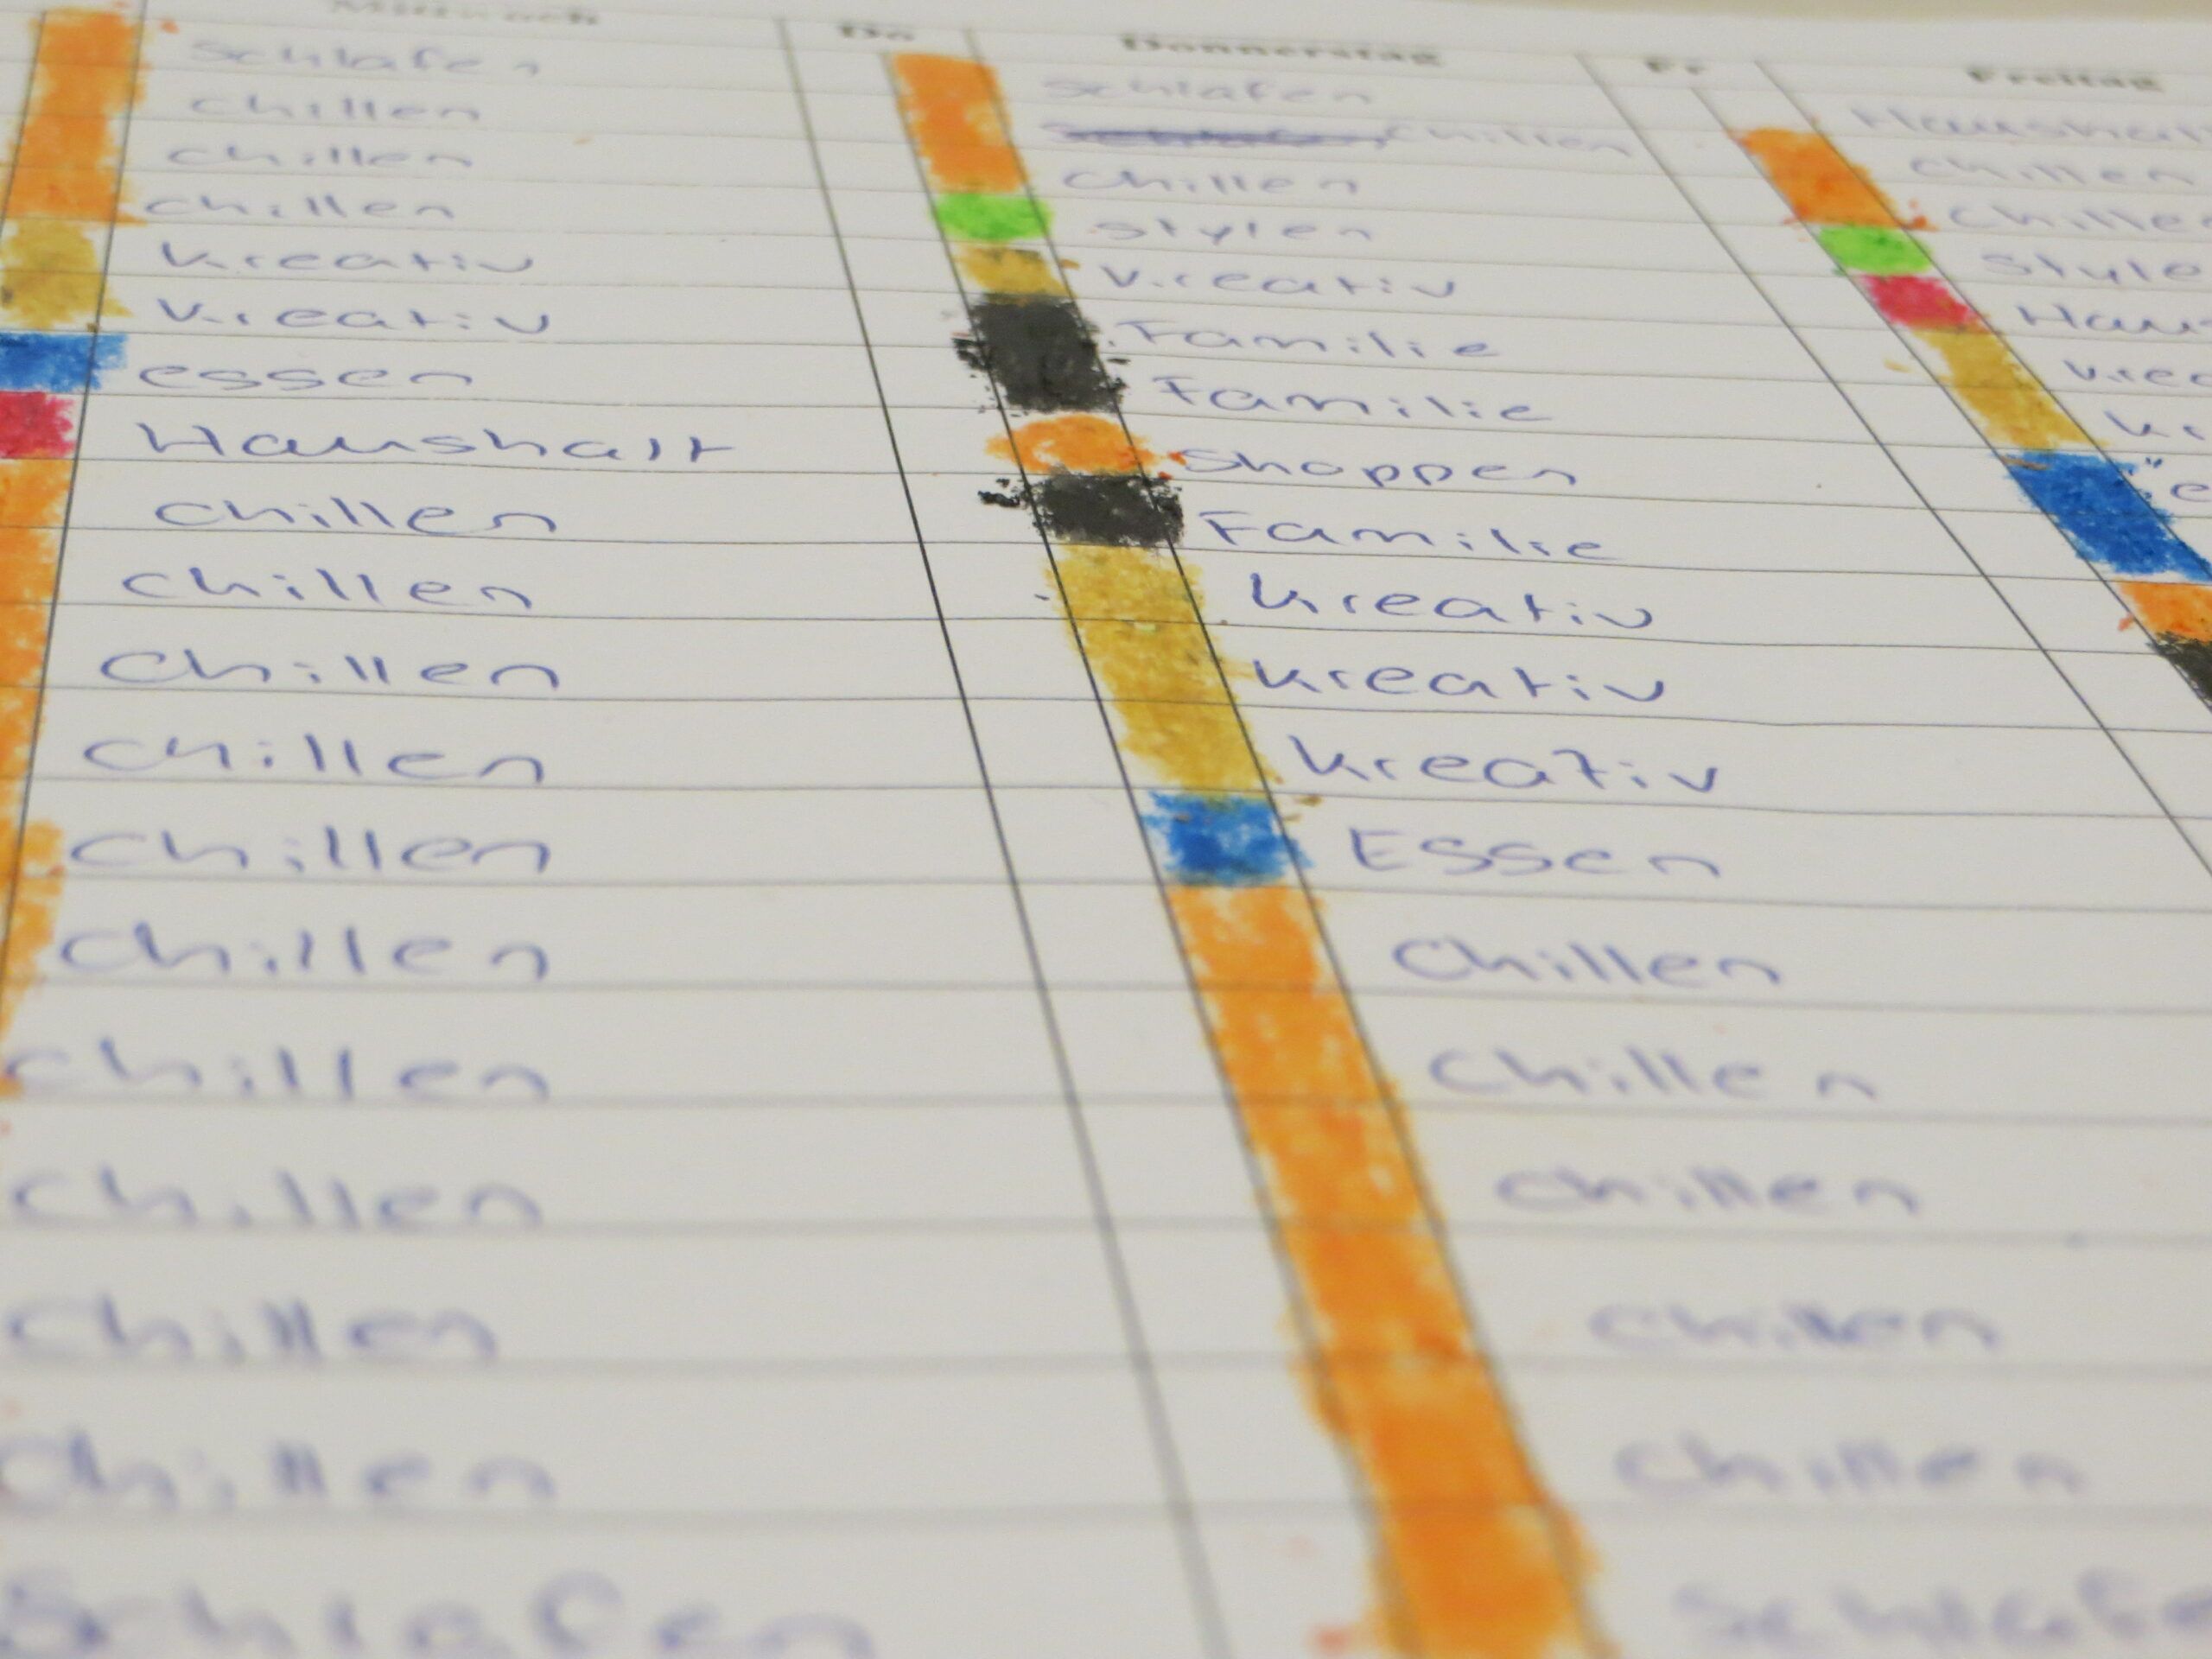 Mittwoch Do Donnerstag Fr Freitag
Schlafen schlafen
chillen chillen chillen
chillen chillen
chillen stylen
kreativ kreativ
kreativ Familie
essen Familie
Haushalt Shoppen
chillen Familie
chillen kreativ
chillen kreativ
chillen kreativ
chillen Essen
chillen chillen
chillen chillen
chillen chillen
chillen chillen
chillen chillen
Schlafen